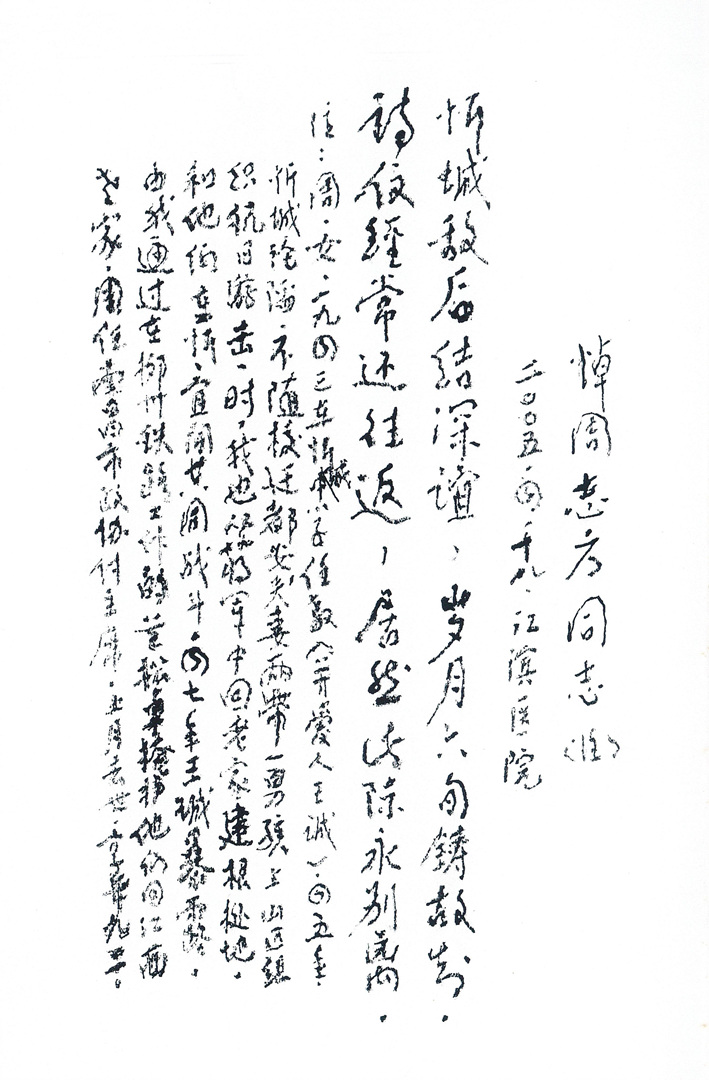 悼周志方同志(注)
二〇〇五·四·十九·江滨医院
忻城敌后结深谊，岁月六旬铸故知。
诗信经常还往返，居然此际永别离。
注：周·女·一九四三在忻城中学任教(爱人王诚)·四五年·
忻城沦陷·不随校迁都安·夫妻两带一男孩上山区组
织抗日游击·时·我也从将军中回老家建根据地·
和他俩在忻、宜开共同战斗·四七年王诚暴露·
由我通过在柳州铁路工作的 掩护他们回江西
老家·周任南昌市政协付主席·五月去世·享年九一·